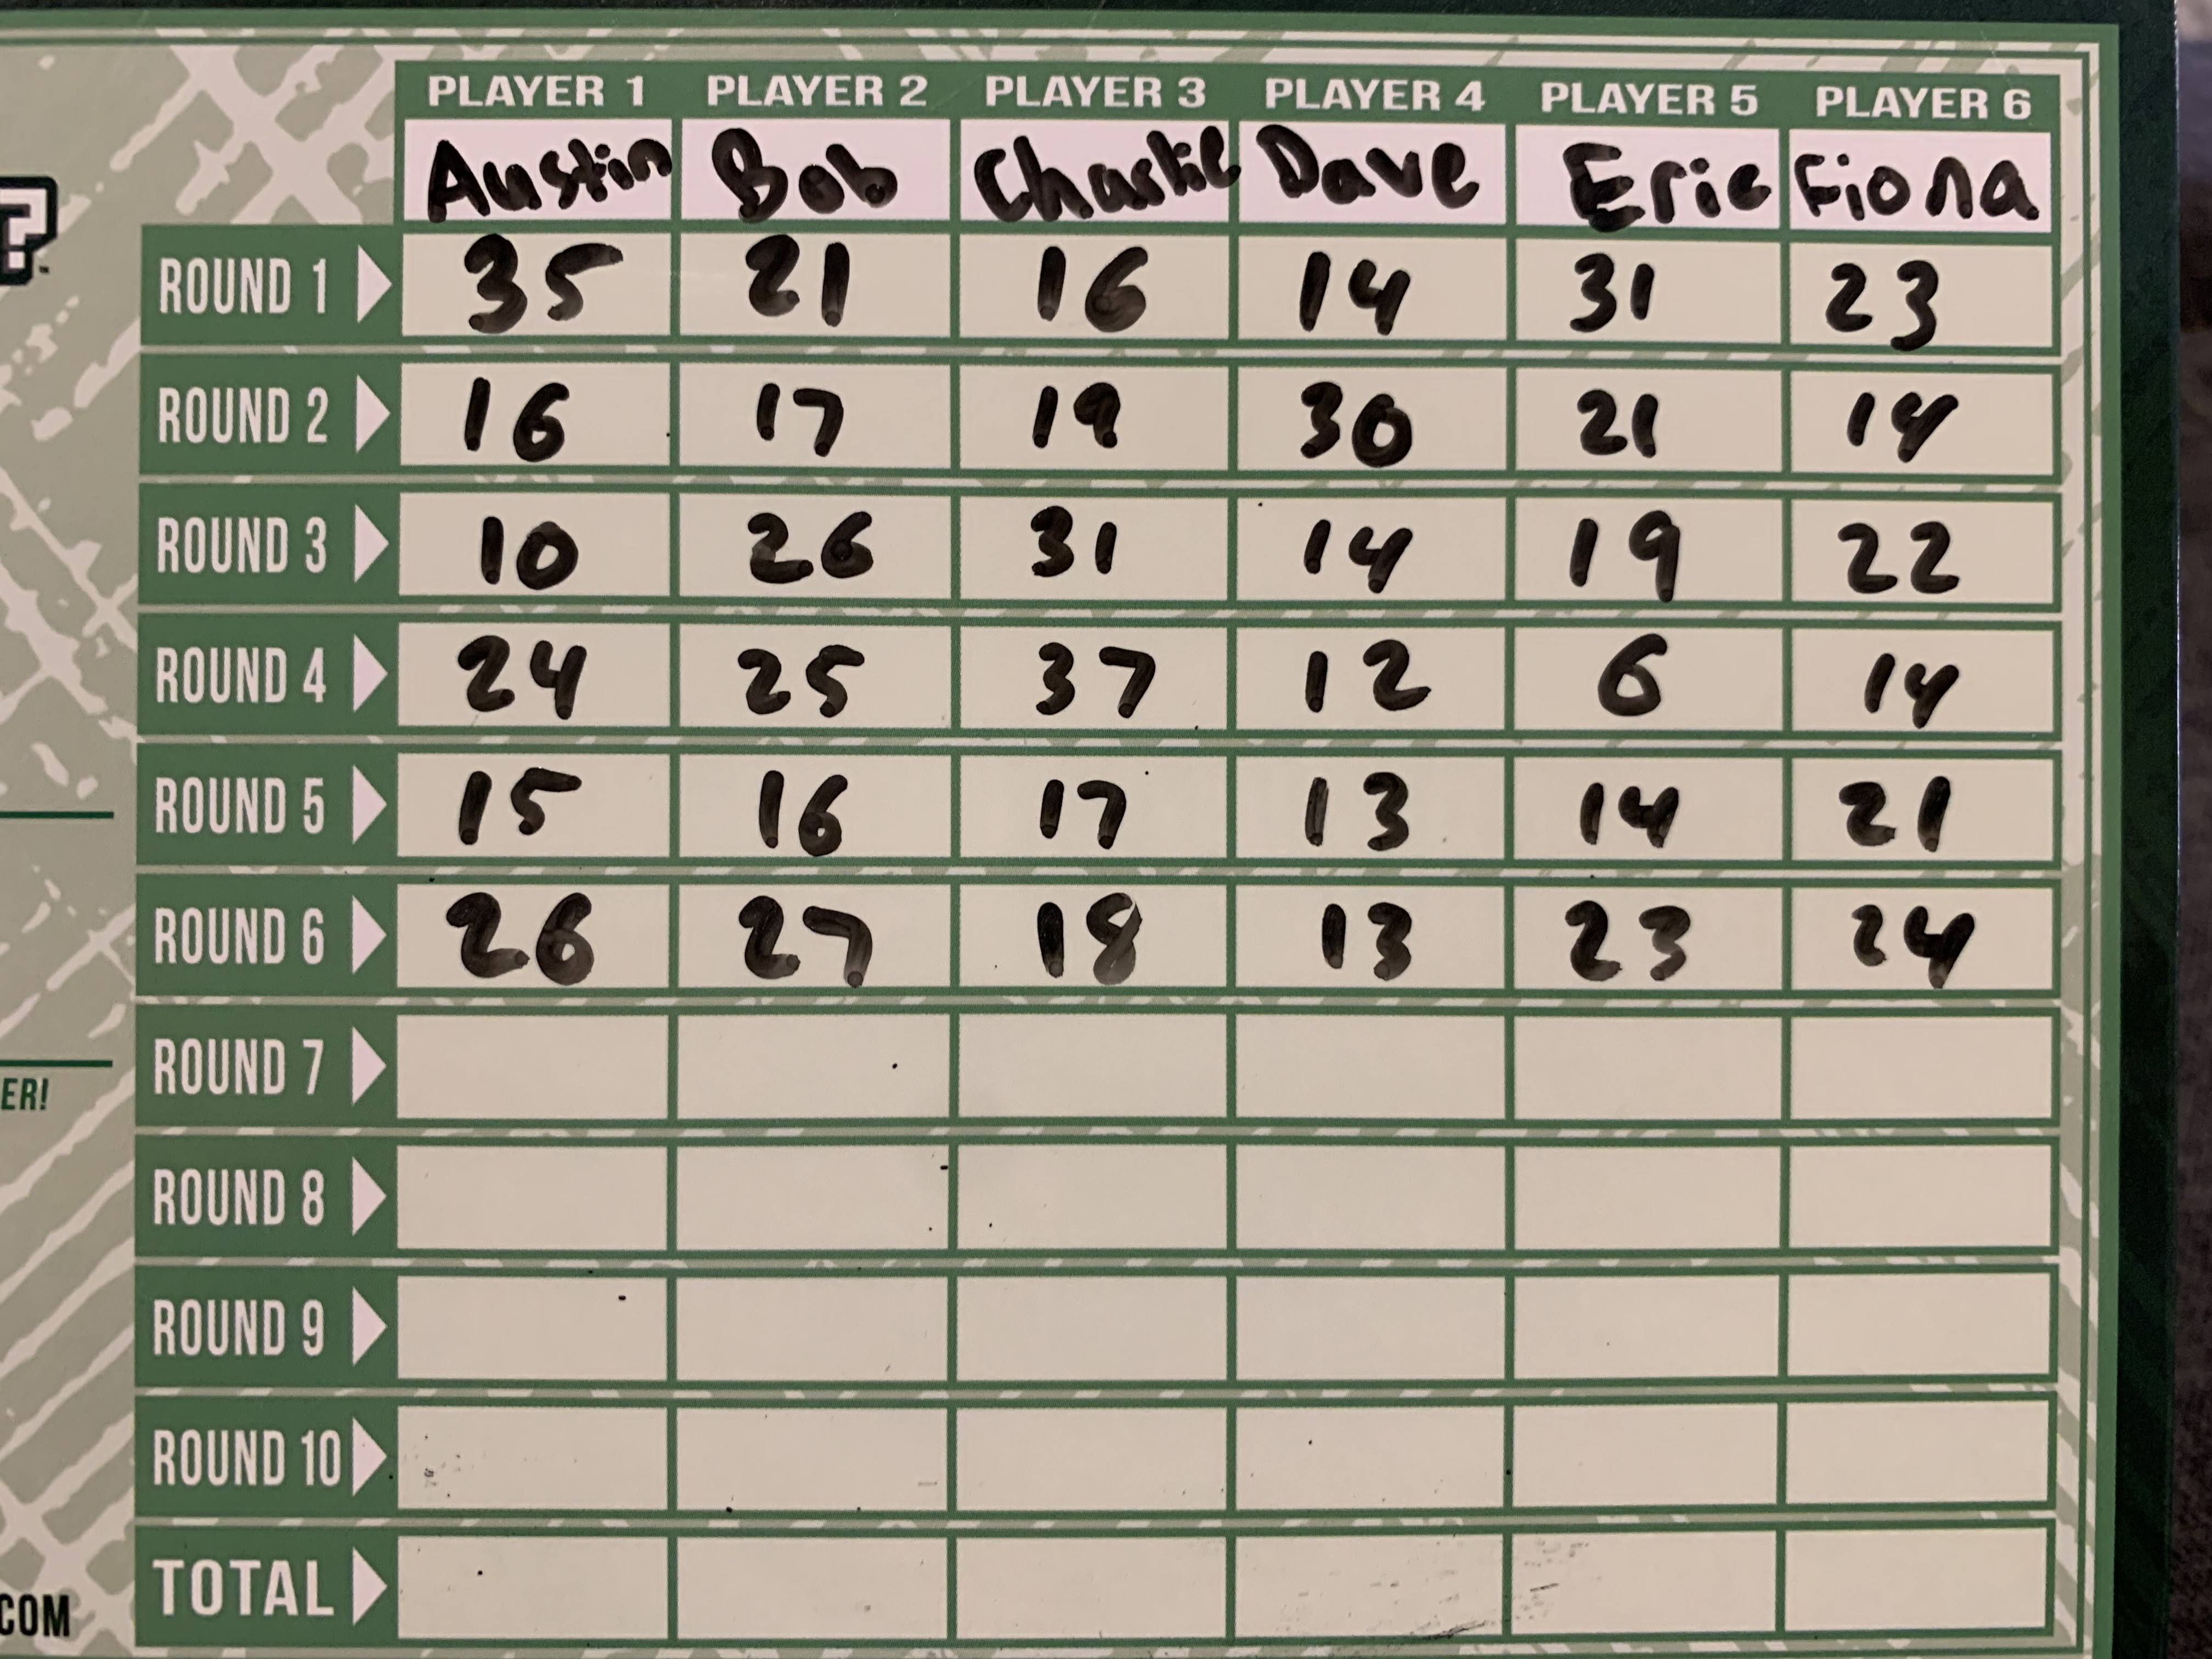 PLAYER 1 PLAYER 2 PLAYER 3 PLAYER 4 PLAYER 5 PLAYER 6
Austin Bob Charlie Dave Eric Fiona
?
ROUND 1 35 21 16 14 31 23
ROUND 2 16 17 19 30 21 14
ROUND 3 10 26 31 14 19 22
ROUND 4 24 25 37 12 6 14
ROUND 5 15 16 17 13 14 21
ROUND 6 26 27 18 13 23 24
ROUND 7
ER!
ROUND 8
ROUND 9
ROUND 10
TOTAL
COM